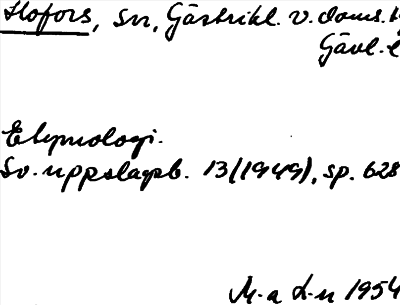 Hofors, sn, Gästrikl. v. doms. h
Gävl. l
Etymologi.
Sv. uppslagsb. 13 (1949), sp. 628
M-a L-n 1954